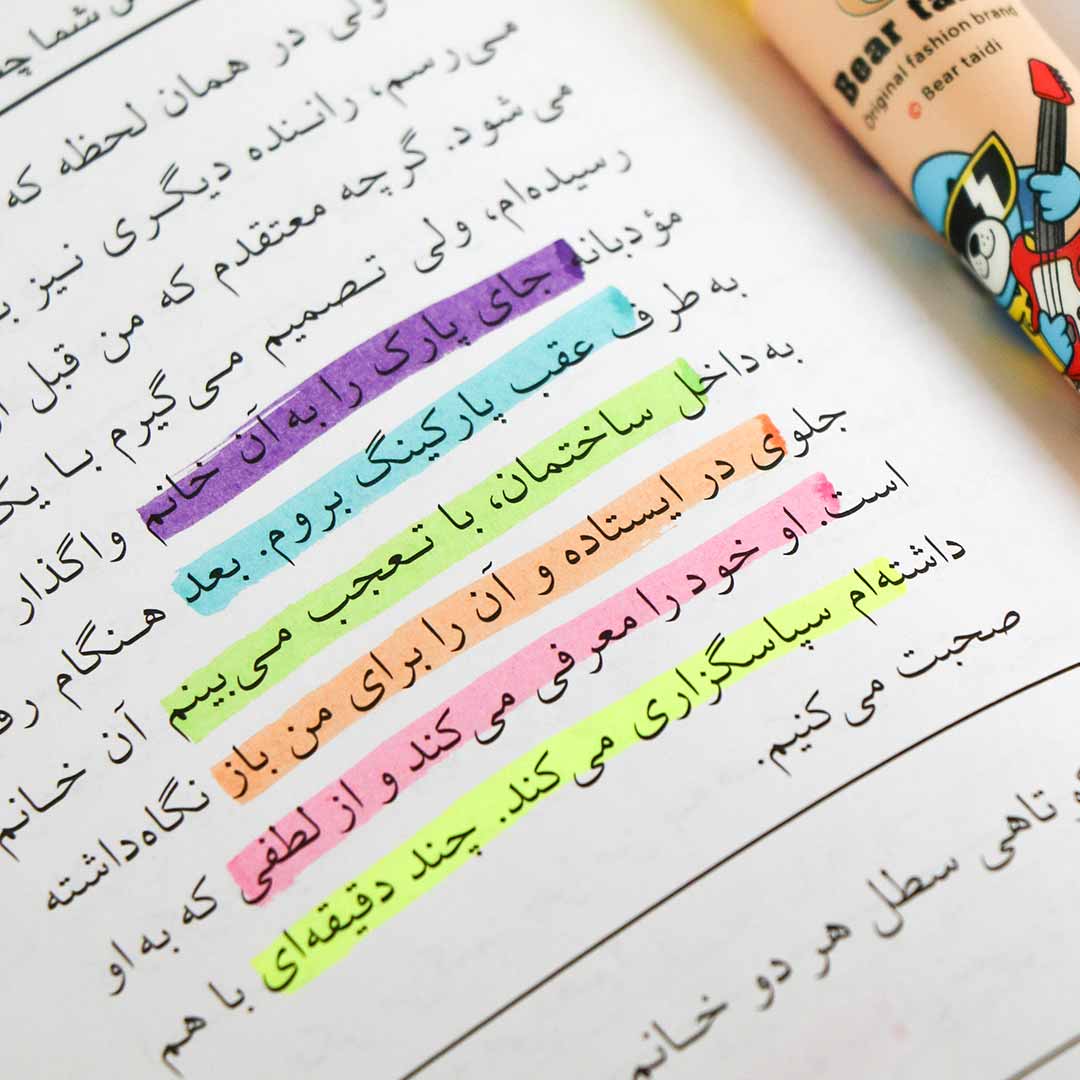 شما
ولی در همان لحظه که
می‌رسم، راننده دیگری نیز
می‌شود. گرچه معتقدم که من قبل
رسیده‌ام، ولی تصمیم می‌گیرم با
مؤدبانه جای پارک را به آن خانم واگذار
به طرف عقب پارکینگ بروم. بعد هنگام
به داخل ساختمان، با تعجب می‌بینم آن خانم
جلوی در ایستاده و آن را برای من باز نگاه‌داشته
است. او خود را معرفی می‌کند و از لطفی که به او
داشته‌ام سپاسگزاری می‌کند. چند دقیقه‌ای با هم
صحبت می‌کنیم.
تاهی سطل هر دو خانم
Bear
Original fashion brand
© Bear taidi